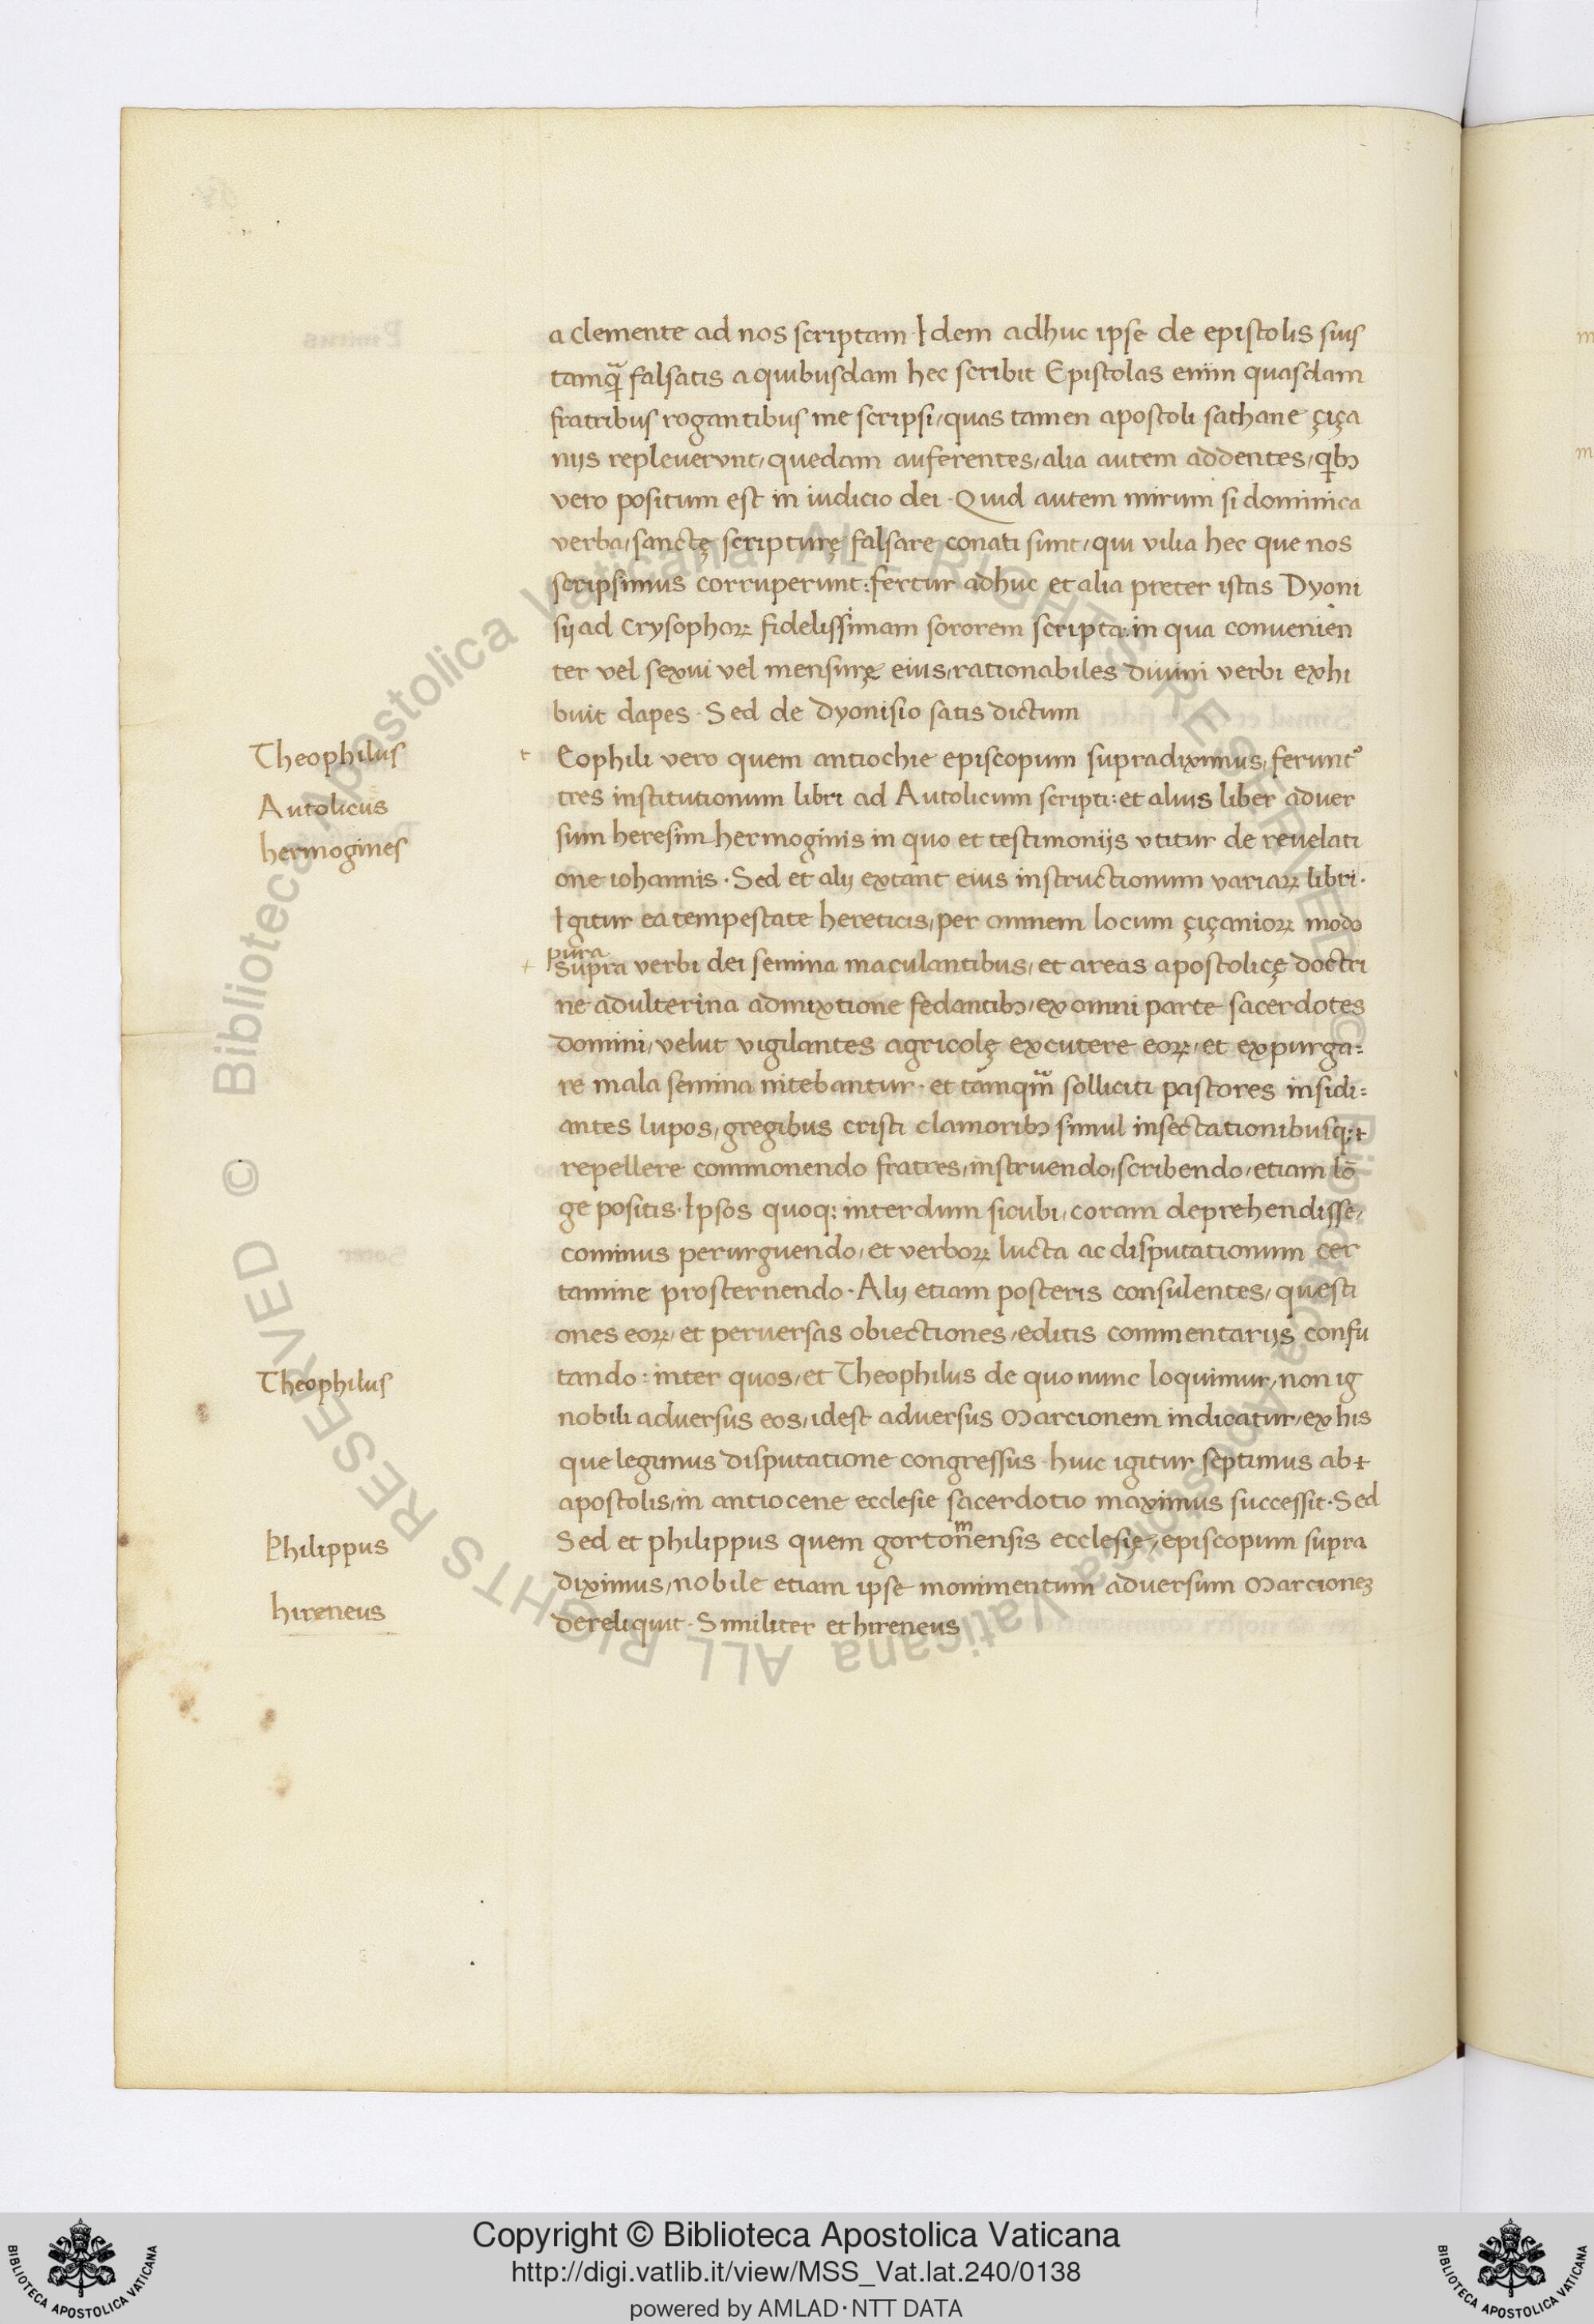 a clemente ad nos scriptam Idem adhuc ipse de epistolis suis
tamq̃ falsatis a quibusdam hec scribit Epistolas enim quasdam
fratribus rogantibus me scripsi, quas tamen apostoli sathane çiça
niis repleverunt, quedam auferentes, alia autem addentes, qibꝫ
vero positum est in iudicio dei · Quid autem mirum si dominica
verba, sanctę scripturę falsare conati sunt, qui vilia hec que nos
scripsimus corruperunt: fertur adhuc et alia preter istas Dyoni
sii ad Crysophoꝝ fidelissimam sororem scripta: in qua convenien
ter vel sexui vel mensurę eius, rationabiles divini verbi exhi
buit dapes · Sed de Dyonisio satis dictum
Theophilus
t Eophili vero quem antiochie episcopum supradiximus, ferunt᷒
Autolicus
tres institutionum libri ad Autolicum scripti: et alius liber adver
hermogines
sum heresim hermoginis in quo et testimoniis utitur de revelati
one iohannis · Sed et alij extant eius instructionum variaꝝ libri ·
Igitur ea tempestate hereticis, per omnem locum çiçanioꝝ modo
pura
+ supra verbi dei semina maculantibus, et areas apostolicę doctri
ne adulterina admixtione fedantibꝫ, ex omni parte sacerdotes
domini, velut vigilantes agricolę excutere eoꝝ, et expurga=
re mala semina nitebantur · et tamqm̃ solliciti pastores insidi=
antes lupos, gregibus cristi clamoribꝫ simul insectationibusq:
repellere commonendo fratres, instruendo, scribendo, etiam lō
ge positis · Ipsos quoq: interdum sicubi, coram deprehendisse,
cominus perurguendo, et verboꝝ lucta ac disputationum cer
tamine prosternendo · Alij etiam posteris consulentes, questi
ones eoꝝ, et perversas obiectiones, editis commentariis confu
Theophilus
tando: inter quos, et Theophilus de quo nunc loquimur, non ig
nobili adversus eos, idest adversus Marcionem indicatur, ex his
que legimus disputatione congressus · huic igitur septimus ab
apostolis, in antiocene ecclesie sacerdotio maximus successit · Sed
m
Philippus
Sed et philippus quem gortonensis ecclesię, episcopum supra
diximus, nobile etiam ipse monimentum adversum Marcioneꝫ
hireneus
dereliquit · Similiter et hireneus
Copyright © Biblioteca Apostolica Vaticana
http://digi.vatlib.it/view/MSS_Vat.lat.240/0138
powered by AMLAD·NTT DATA
BIBLIOTECA APOSTOLICA VATICANA
BIBLIOTECA APOSTOLICA VATICANA
© Biblioteca Apostolica Vaticana ALL RIGHTS RESERVED © Biblioteca Apostolica Vaticana ALL RIGHTS RESERVED